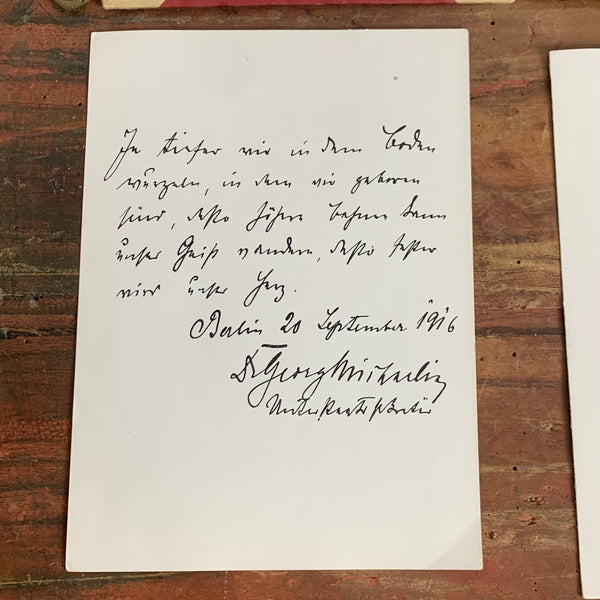 Je tiefer wir in dem Boden
wurzeln, in dem wir geboren
sind, desto höhere Bahnen kann
unser Geist wandern, desto fester
wird unser Herz.
Berlin 20 September 1916
Dr Georg Michaelis
Unterstaatssekretär